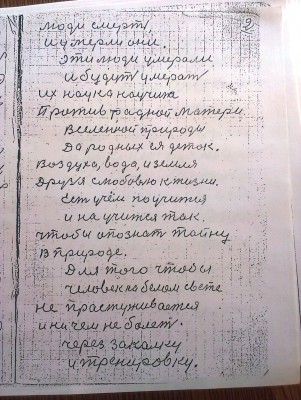 2
люди смерт
и умерли они.
Эти люди умерали
и будут умерат
их наука научила
Против радной матери.
Вселенной природы
Да родных ея деток.
Воздуха, вода, и земля
Друзя с любовью к жизни.
Ест учём поучится
и научится так.
чтобы опознат тайну
в природе.
Для того чтобы
человек на белом свете
не прастуживается
и ничем не болет.
через закалку
и тренировку.